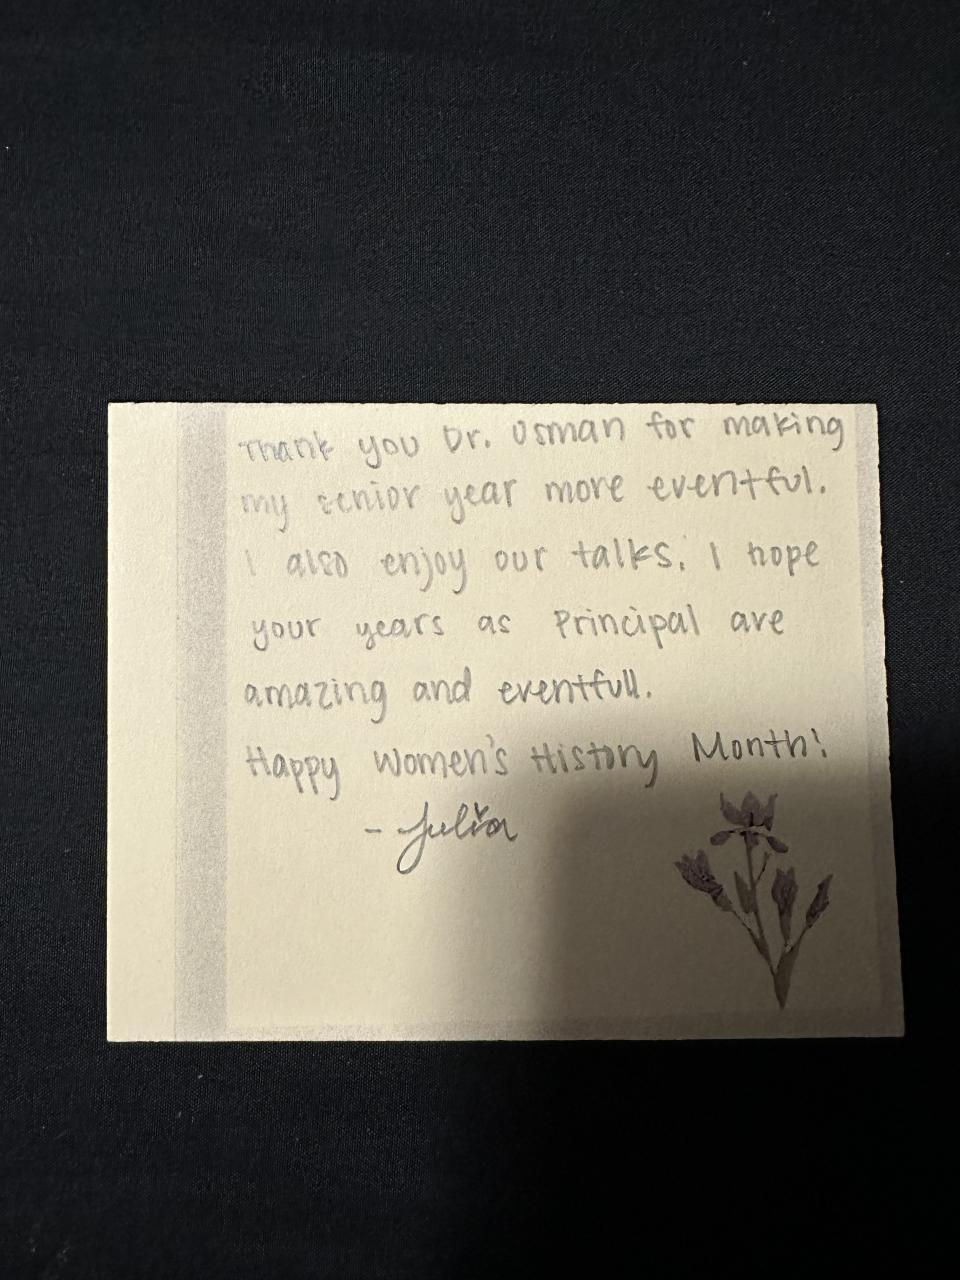 Thank you Dr. Usman for making
my senior year more eventful.
I also enjoy our talks. I hope
your years as Principal are
amazing and eventfull.
Happy Women's History Month!
- Julia